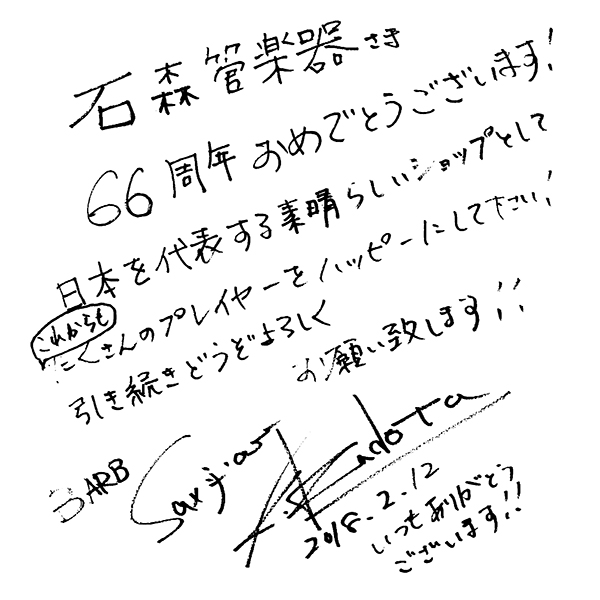 石森管楽器さま
66周年おめでとうございます!
日本を代表する素晴らしいショップとして
これからも
たくさんのプレイヤーをハッピーにして下さい!
引き続きどうぞよろしく
お願い致します!!
BARB
Sax
Kadota
2018.2.12
いつもありがとう
ございます!!